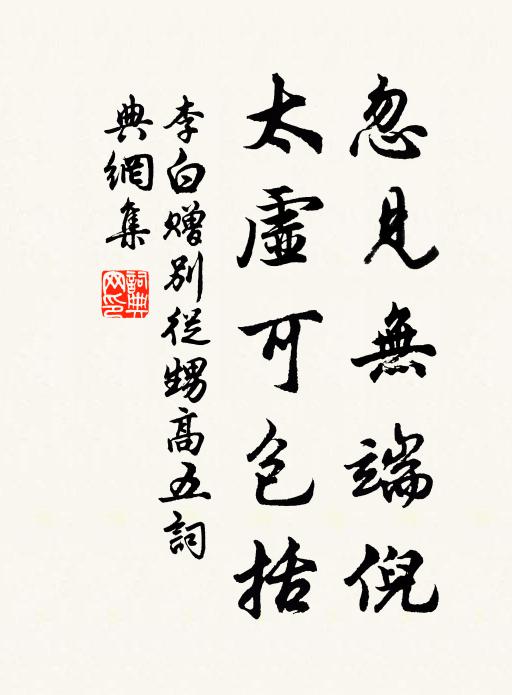 忽見無端倪
太虛可包括
李白贈別從甥高五詞
典網集
詞典
网印